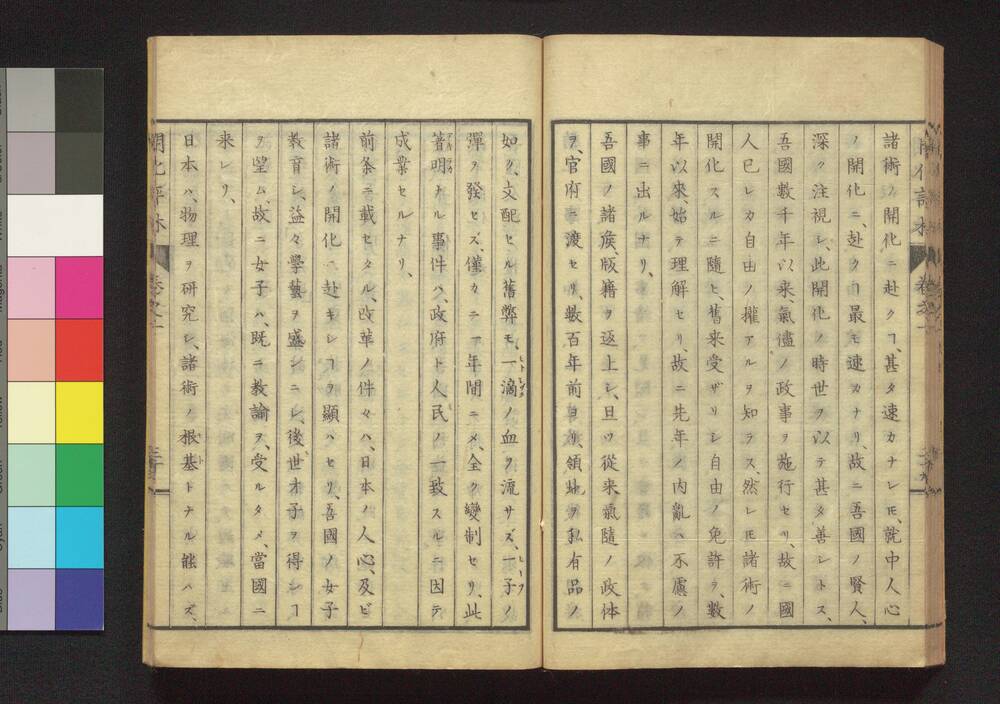 諸術ノ開化ニ赴クヿ、甚タ速カナレ𪜈、就中人心
ノ開化ニ、赴クヿ最モ速カナリ、故ニ吾國ノ賢人、
深ク注視シ、此開化ノ時世ヲ以テ甚タ善シトス、
吾國數千年以来、氣儘ノ政事ヲ施行セリ、故ニ國
人已レカ自由ノ權アルヲ知ラス、然レ𪜈諸術ノ
開化スルニ隨ヒ、舊来受ザリシ自由ノ免許ヲ、數
年以來、始テ理解セリ、故ニ先年ノ内亂ハ不慮ノ
事ニ出ルナリ、
吾國ノ諸侯、版籍ヲ返上シ、旦ツ從来氣隨ノ政体
ヲ、官府ニ渡セリ、數百年前自リ、領地ヲ私有品ノ
如ク、支配セル舊弊モ、一滴ノ血ヲ流サズ、一子ノ
彈ヲ發セズ、僅カニ一年間ニメ、全ク變制セリ、此
著明ナル事件ハ、政府ト人民ノ一致スルニ因テ
成業セルナリ、
前条ニ載セタル、改革ノ件々ハ、日本ノ人心、及ビ
諸術ノ開化ニ赴キシヿヲ顯ハセリ、吾國ノ女子
教育シ、益々學藝ヲ盛ンニシ、後世才子ヲ得ンヿ
ヲ望ム、故ニ女子ハ、既ニ教諭ヲ、受ルタメ、當國ニ
来レリ、
日本ハ、物理ヲ研究シ、諸術ノ根基トナル能ハズ、